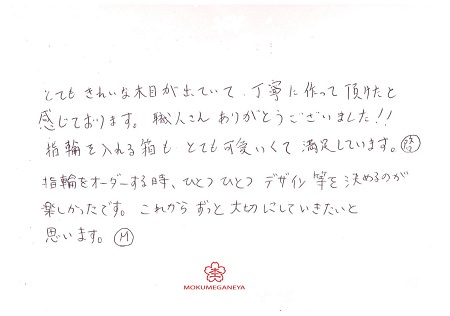 とてもきれいな木目が出ていて、丁寧に作って頂けたと
感じております。職人さんありがとうございました!!
指輪を入れる箱もとても可愛いくて満足しています。
指輪をオーダーする時、ひとつひとつデザイン等を決めるのが
楽しかったです。これからずっと大切にしていきたいと
思います。M
MOKUMEGANEYA